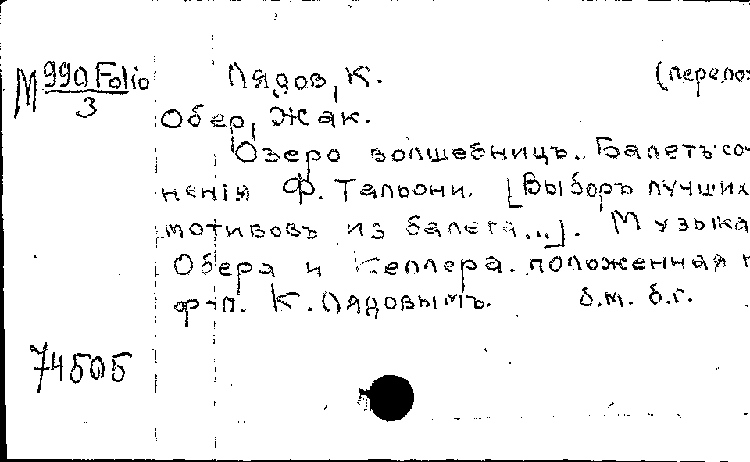 М 990 Folio
3
Лядов, К. (перелож
Обер, Жак.
Озеро волшебницъ. Балетъ со-
ненія Ф. Тальони. [Выборъ лучших
мотивовъ из балета...]. Музыка
Обера и Келлера. положенная
ф-п. К. Лядовымъ. б.м. б.г.
74505